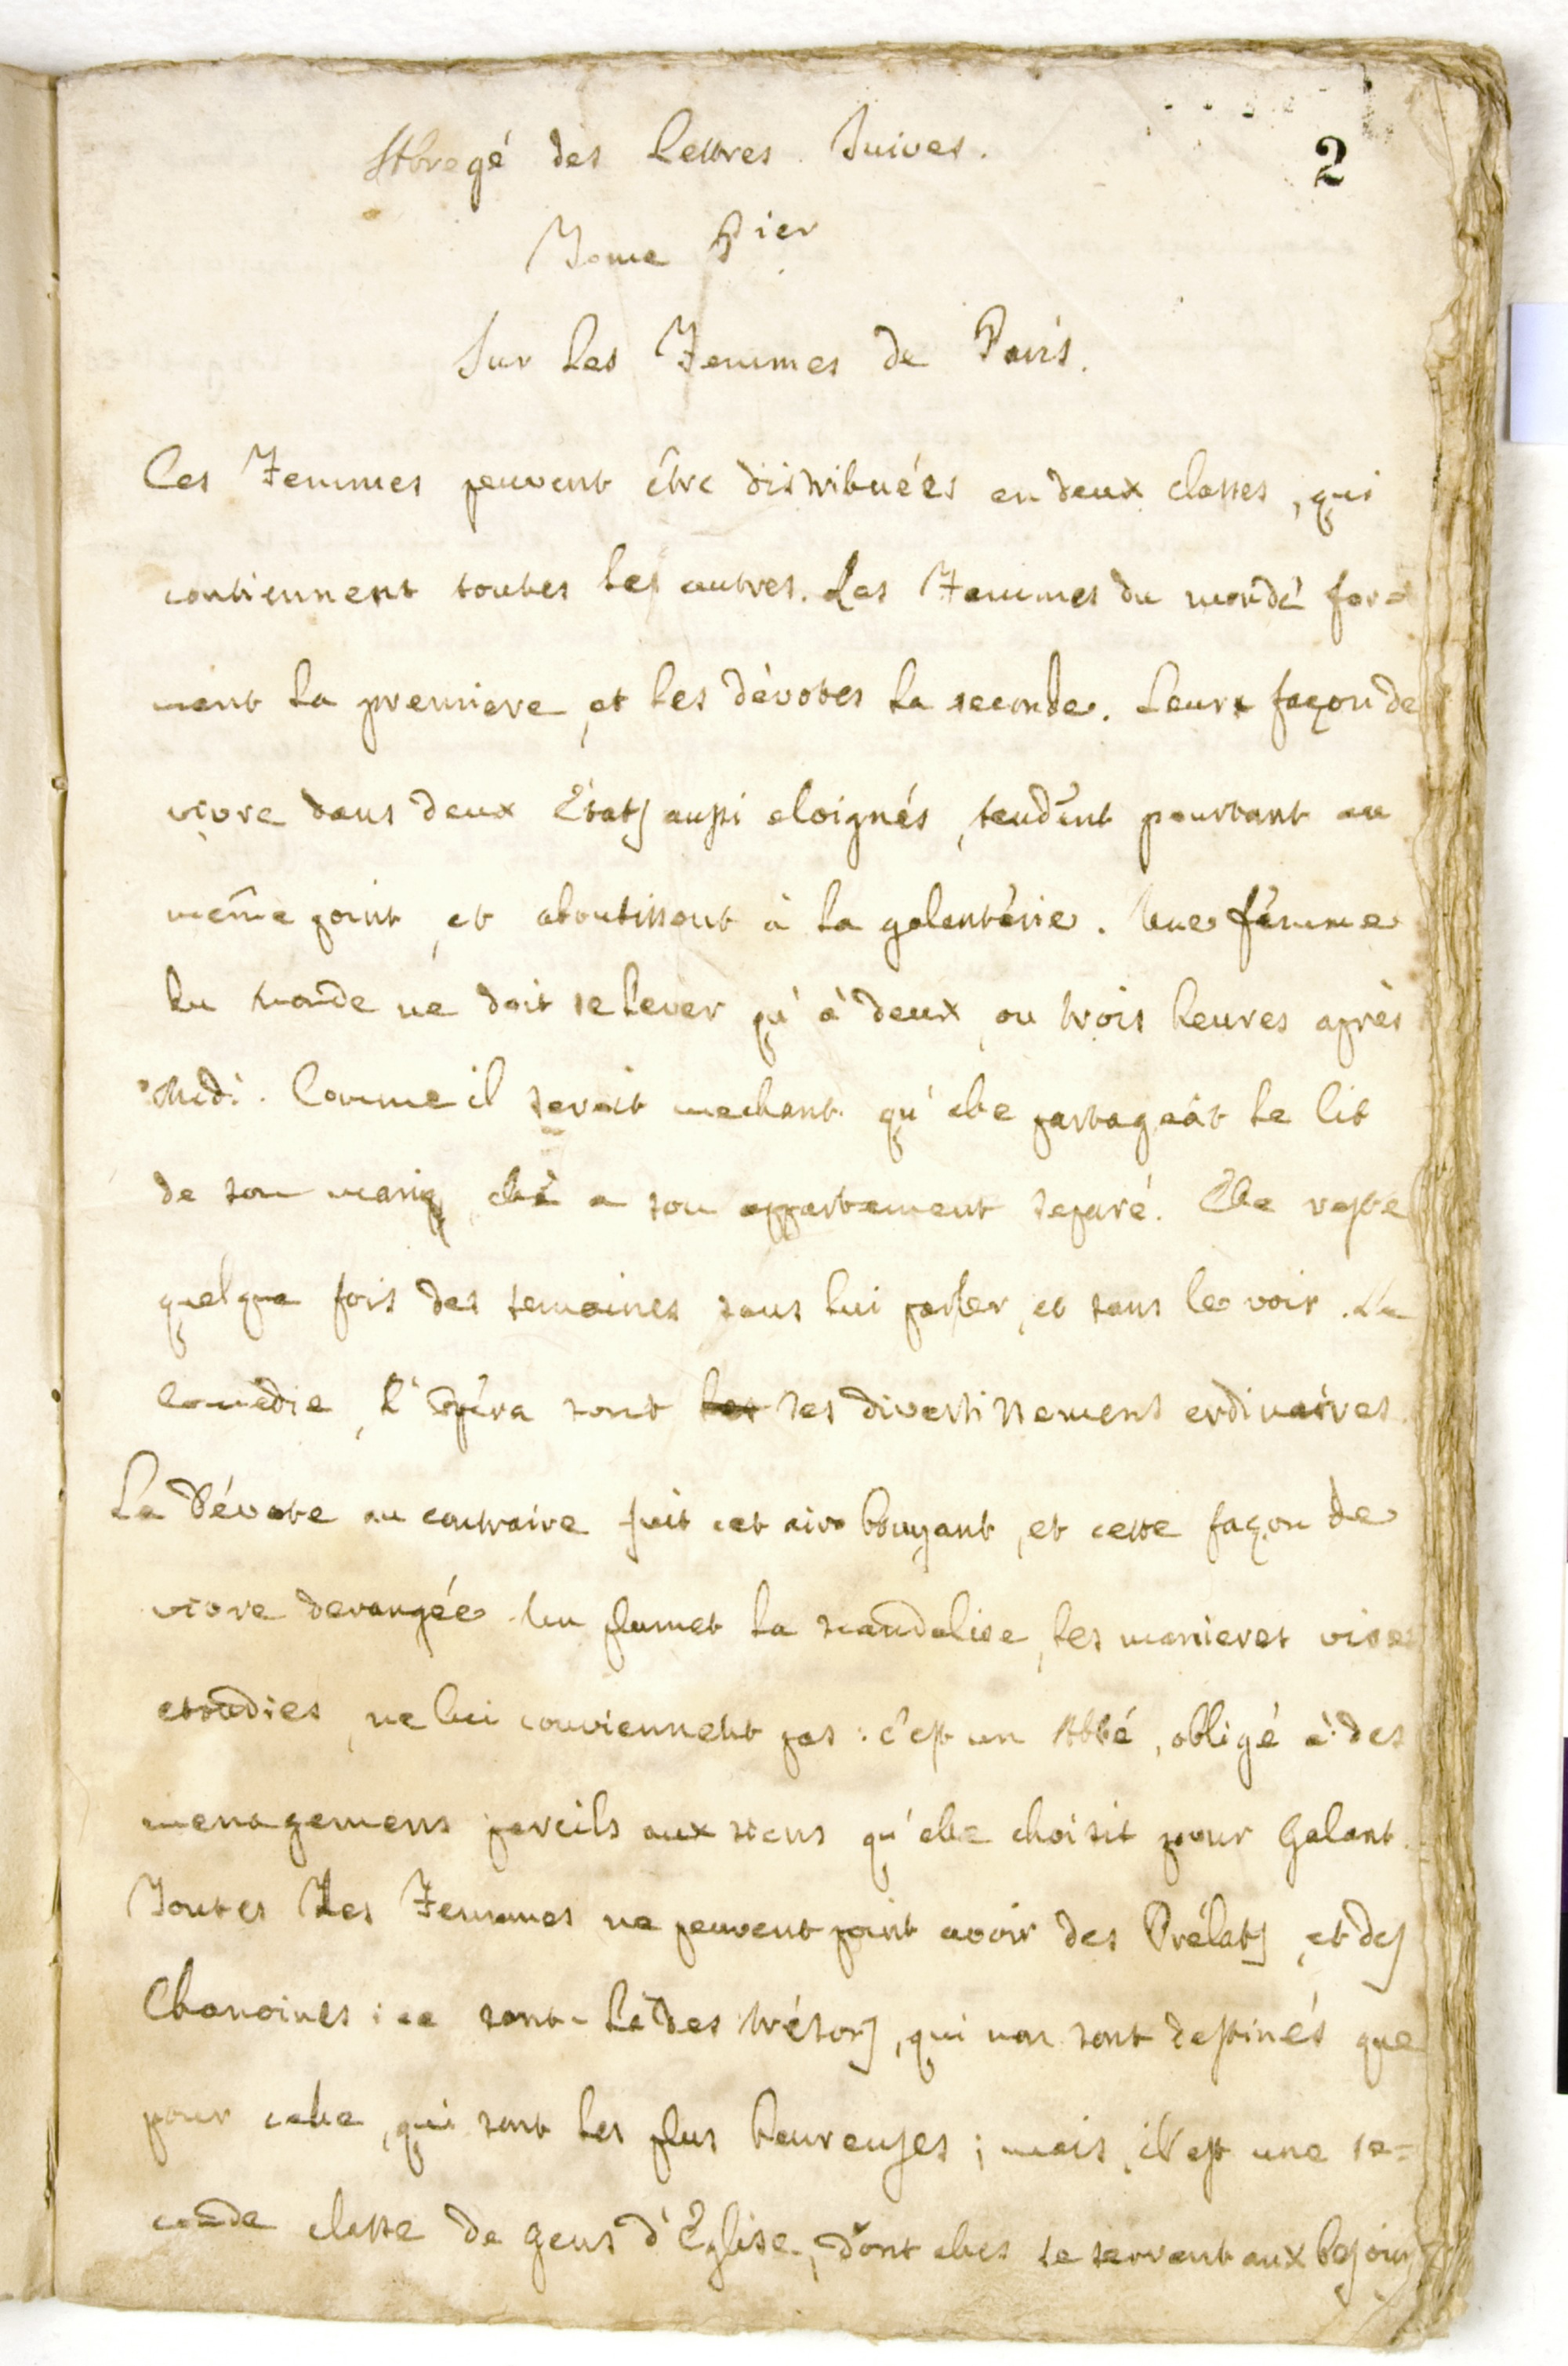 Abregé des Lettres Juives.
2
Tome Pier
Sur Les Femmes de Paris.
Ces Femmes peuvent être distribuées en deux classes, qui
contiennent toutes les autres. Les Femmes du monde for=
ment la premiere, et les dévotes la seconde. Leurs façon de
vivre dans deux Etats aussi eloignés, tendent pourtant au
même point, et aboutissent à la galanterie. Une femme
du monde ne doit se lever qu'à deux, ou trois heures après
Midi. Comme il seroit mechant qu'elle partageât le lit
de son mary, elle a son appartement separé. Elle reste
quelque fois des semaines sans lui parler, et sans le voir. La
Comédie, l'Opéra sont les ses divertissemens ordinaires.
La Dévote au contraire fuit cet air bruyant, et cette façon de
vivre derangée. Un plumet la scandalise, les manieres vives
etourdies, ne lui conviennent pas: c'est un Abbé, obligé à des
menagemens pareils aux siens qu'elle choisit pour Galant.
Toutes Les Femmes ne peuvent point avoir des Prélats, et des
Chanoines: ce sont-là des trésors, qui non sont destinés que
pour celle, qui sont les plus heureuses; mais, il est une se=
conde classe de gens d'Eglise, dont elles se servent aux besoins